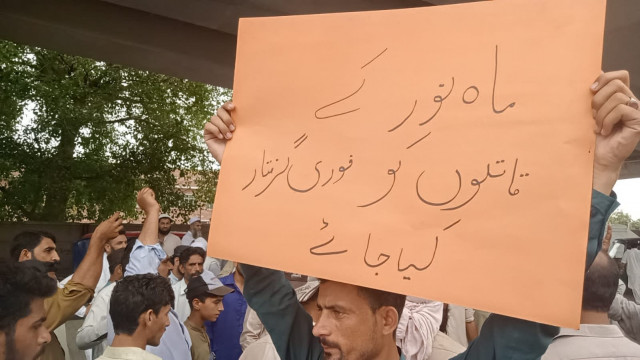 ماہ نور کے
قاتلوں کو فوری گرفتار
کیا جائے